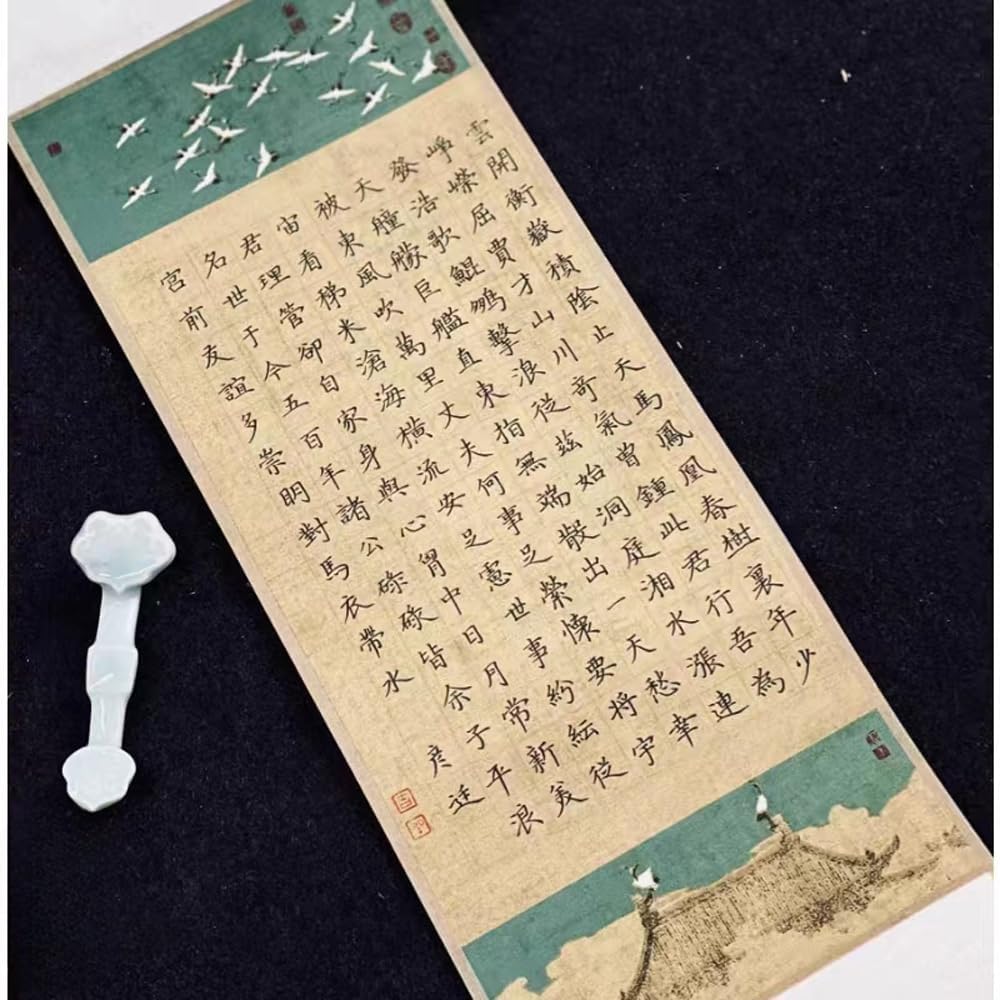 雲開衡嶽積陰止天馬鳳凰春樹裏年少
崢嶸屈貴才山川奇氣曾鍾此君行吾為
發浩歌鯤鵬擊浪從茲始洞庭湘水漲連
天艟艨巨艦直東拍無端散出一天愁幸
被東風吹萬里丈夫何事足縈懷要将宇
宙看梯米滄海橫流安足憲世事紛紜從
君理管卻自家身與心胷中日月常新美
名世于今五百年諸公碌碌皆余子平浪
宮前友誼多崇明對馬衣帶水 彦廷